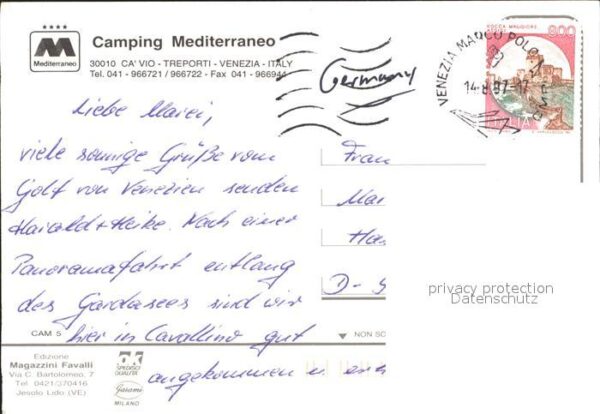 Camping Mediterraneo
Mediterraneo
30010 CA' VIO - TREPORTI - VENEZIA - ITALY
Tel. 041 - 966721 / 966722 - Fax 041 - 966944
Germany
VENEZIA MARCO POLO
14-8-97-17
ROCCA MAGGIORE
800
ITALIA
Liebe Marei,
viele sonnige Grüße vom
Golf von Venezien senden
Harald + Heike. Nach einer
Panoramafahrt entlang
des Gardasees sind wir
hier in Cavallino gut
angekommen u.
Frau
Ma
Ha
D-
privacy protection
Datenschutz
CAM 5
NON SC
Edizione
Magazzini Favalli
Via C. Bartolomeo, 7
Tel. 0421/370416
Jesolo Lido (VE)
OK
Garami
MILANO